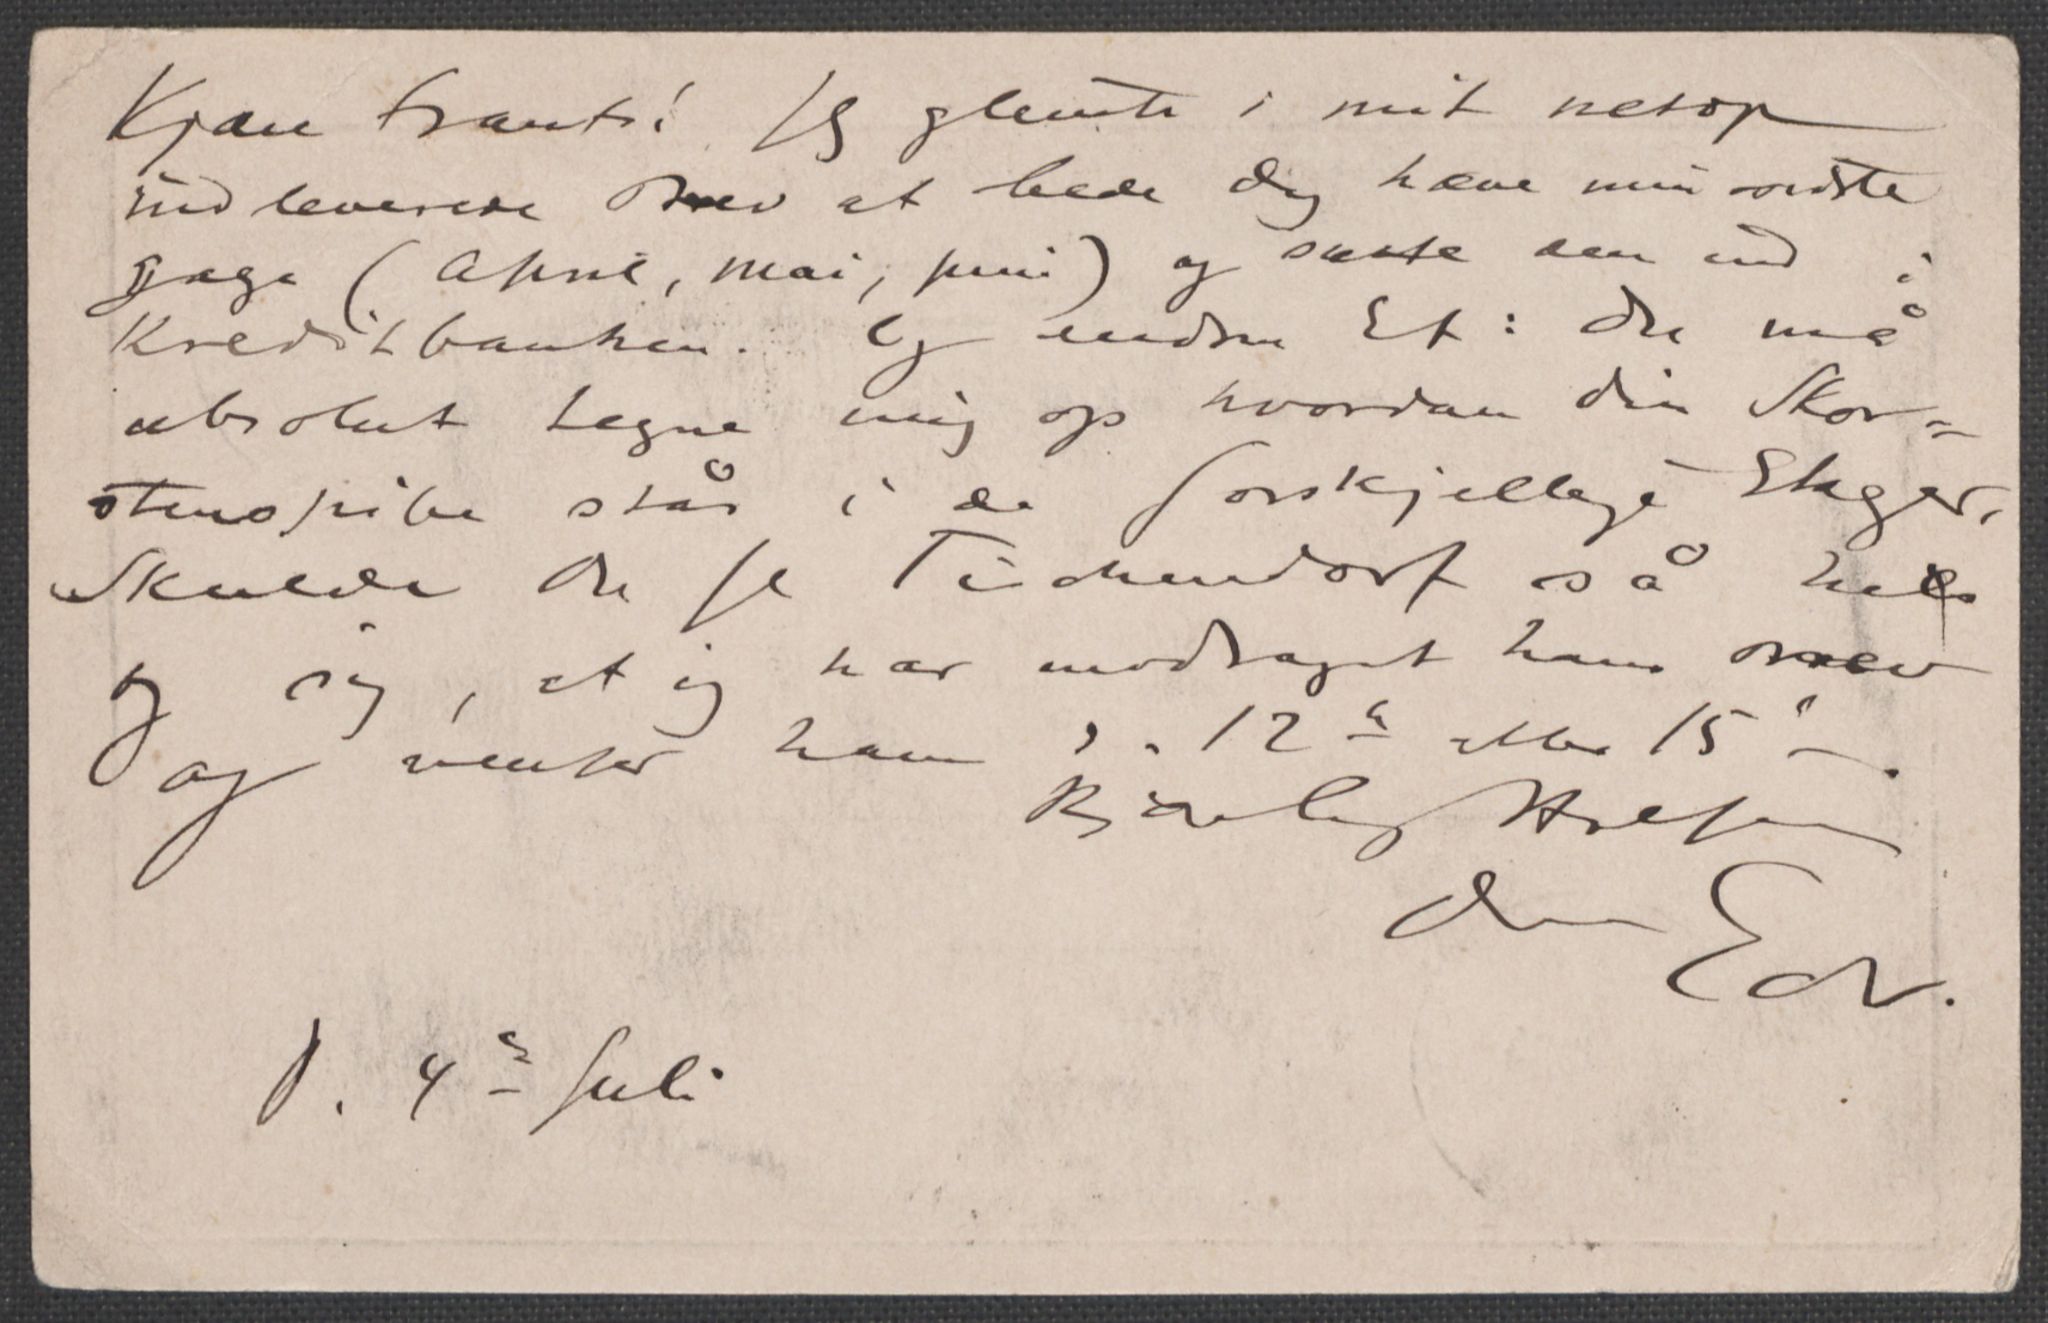 Kjære Frants! Jeg glemte i mit netop
indleverede Brev at bede dig hæve min sidste
gage (April, Mai, juni) og sætte den ind i
Kreditbanken. Og endnu Et: du må
absolut tegne mig op hvordan din Skor=
stenspibe står i de forskjellige Etager.
Skulde du se Tischendorf så hils
og sig, at jeg har modtaget hans Brev
og venter ham d. 12te eller 15de.
Kjærlig Hilsen
din Edv.
d. 4de Juli